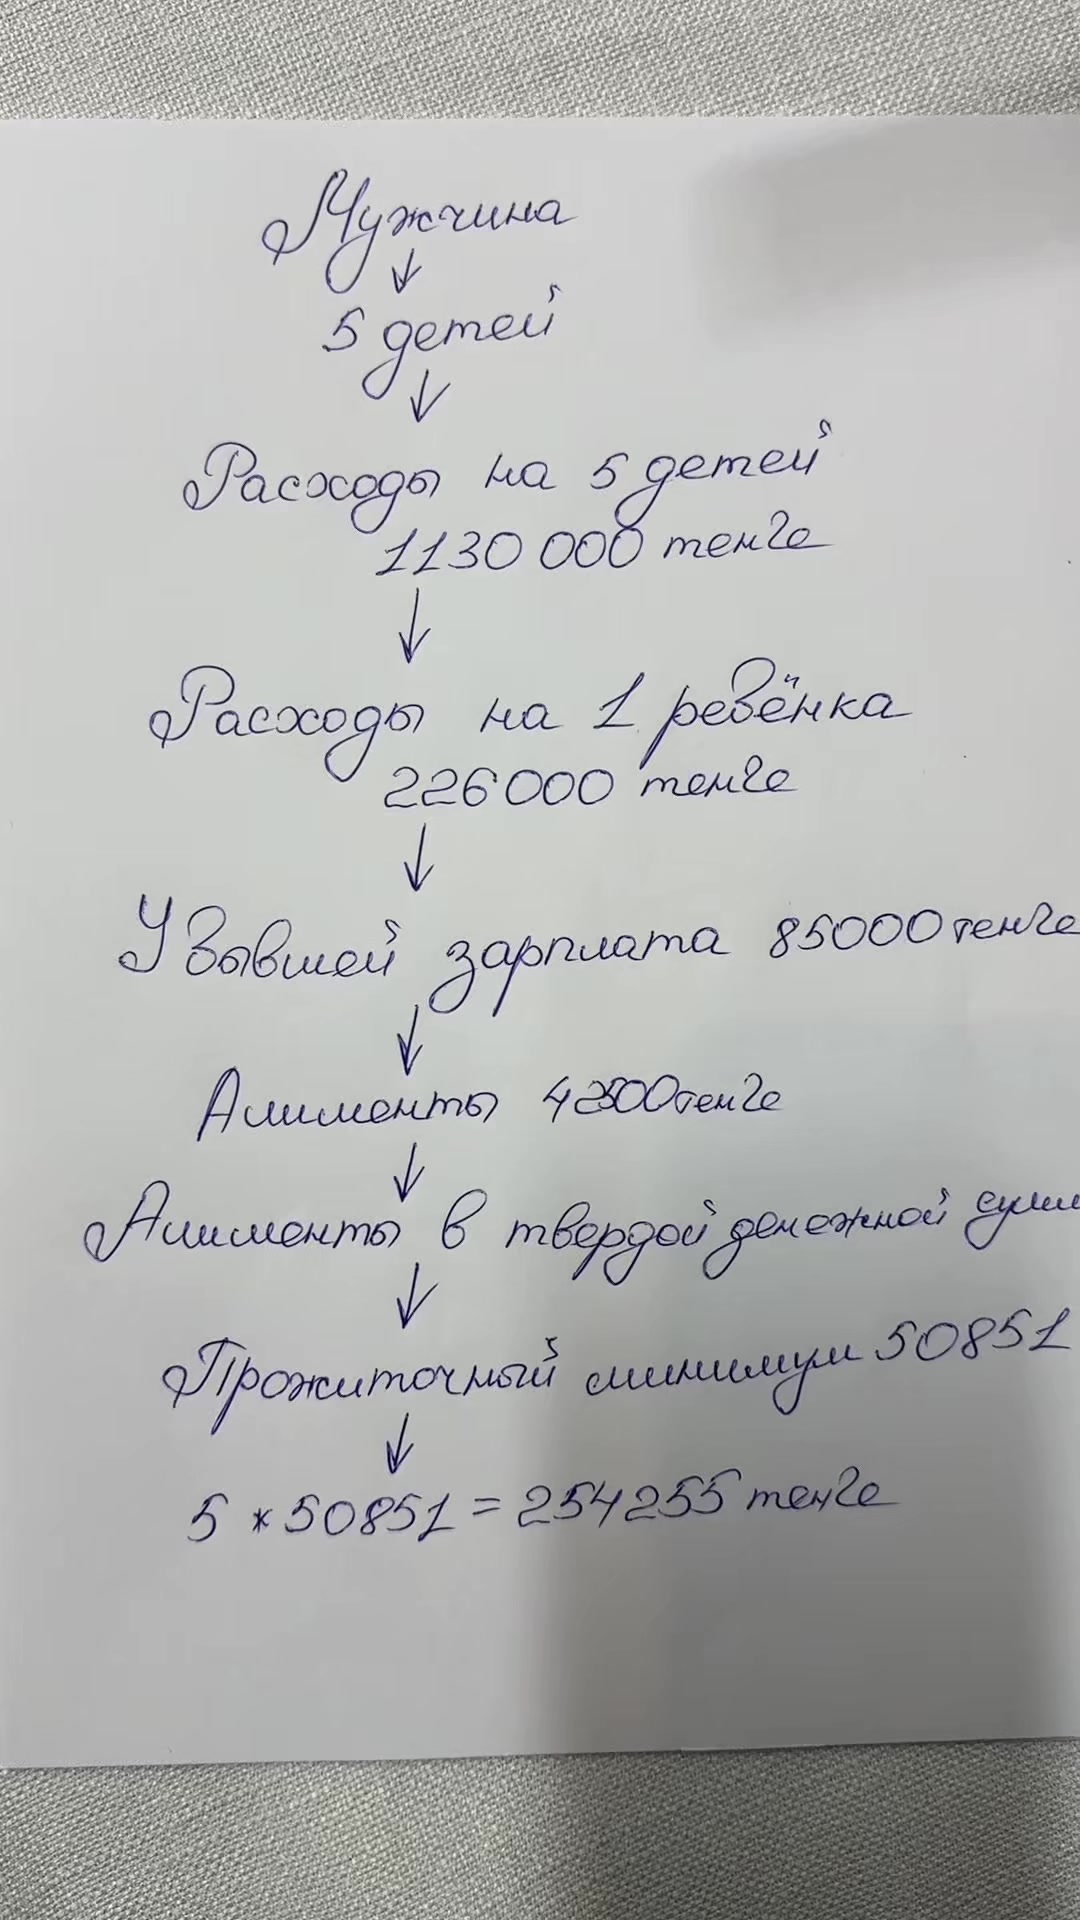 Мужчина
5 детей
Расходы на 5 детей
1130 000 тенге
Расходы на 1 ребёнка
226000 тенге
У бывшей зарплата 85000 тенге
Алименты 42500 тенге
Алименты в твердой денежной сумм
Прожиточный минимум 50851
5 * 50851 = 254255 тенге